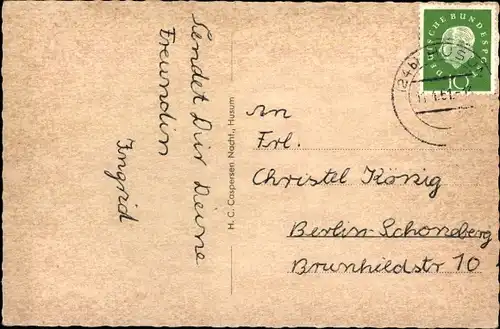 Sendet Dir Deine
Freundin
Ingrid
H. C. Caspersen Nachf., Husum
DEUTSCHE BUNDESPOST
10
(24b) HUSUM
An
Frl.
Christel König
Berlin-Schöneberg
Brunhildstr 10